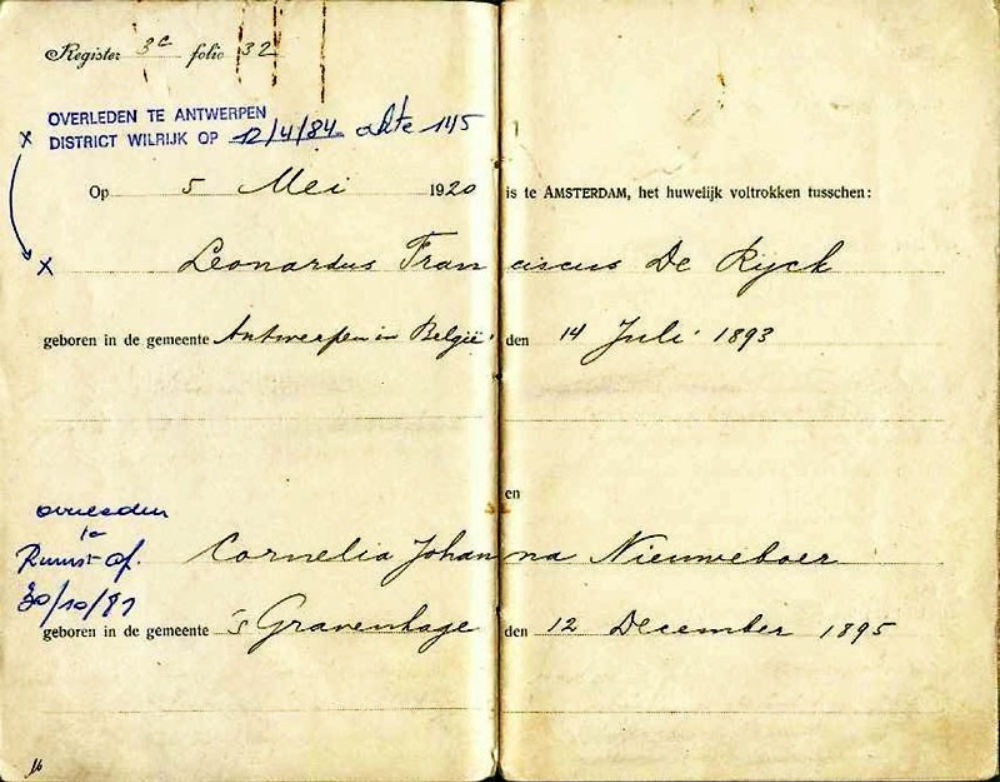 Register 3c folio 32
OVERLEDEN TE ANTWERPEN
x DISTRICT WILRIJK OP 12/4/84 akte 145
Op 5 Mei 1920 is te AMSTERDAM, het huwelijk voltrokken tusschen:
x Leonardus Franciscus De Rijck
geboren in de gemeente Antwerpen in België den 14 Juli 1893
en
overleden
te
Rumst op
Cornelia Johanna Nieuweboer
30/10/81
geboren in de gemeente 's Gravenhage den 12 December 1895
16